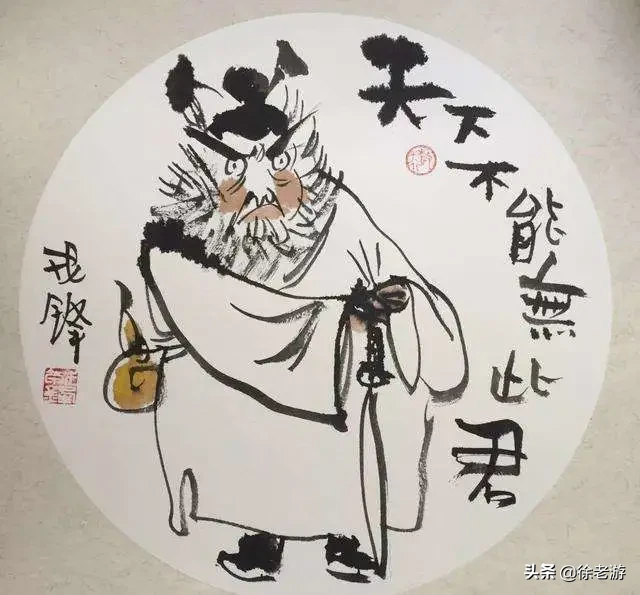 天下不能無此君
戎鋒
头条 @徐老游